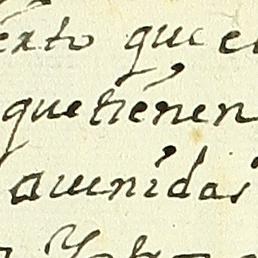 exto que el
que tienen
auenidas